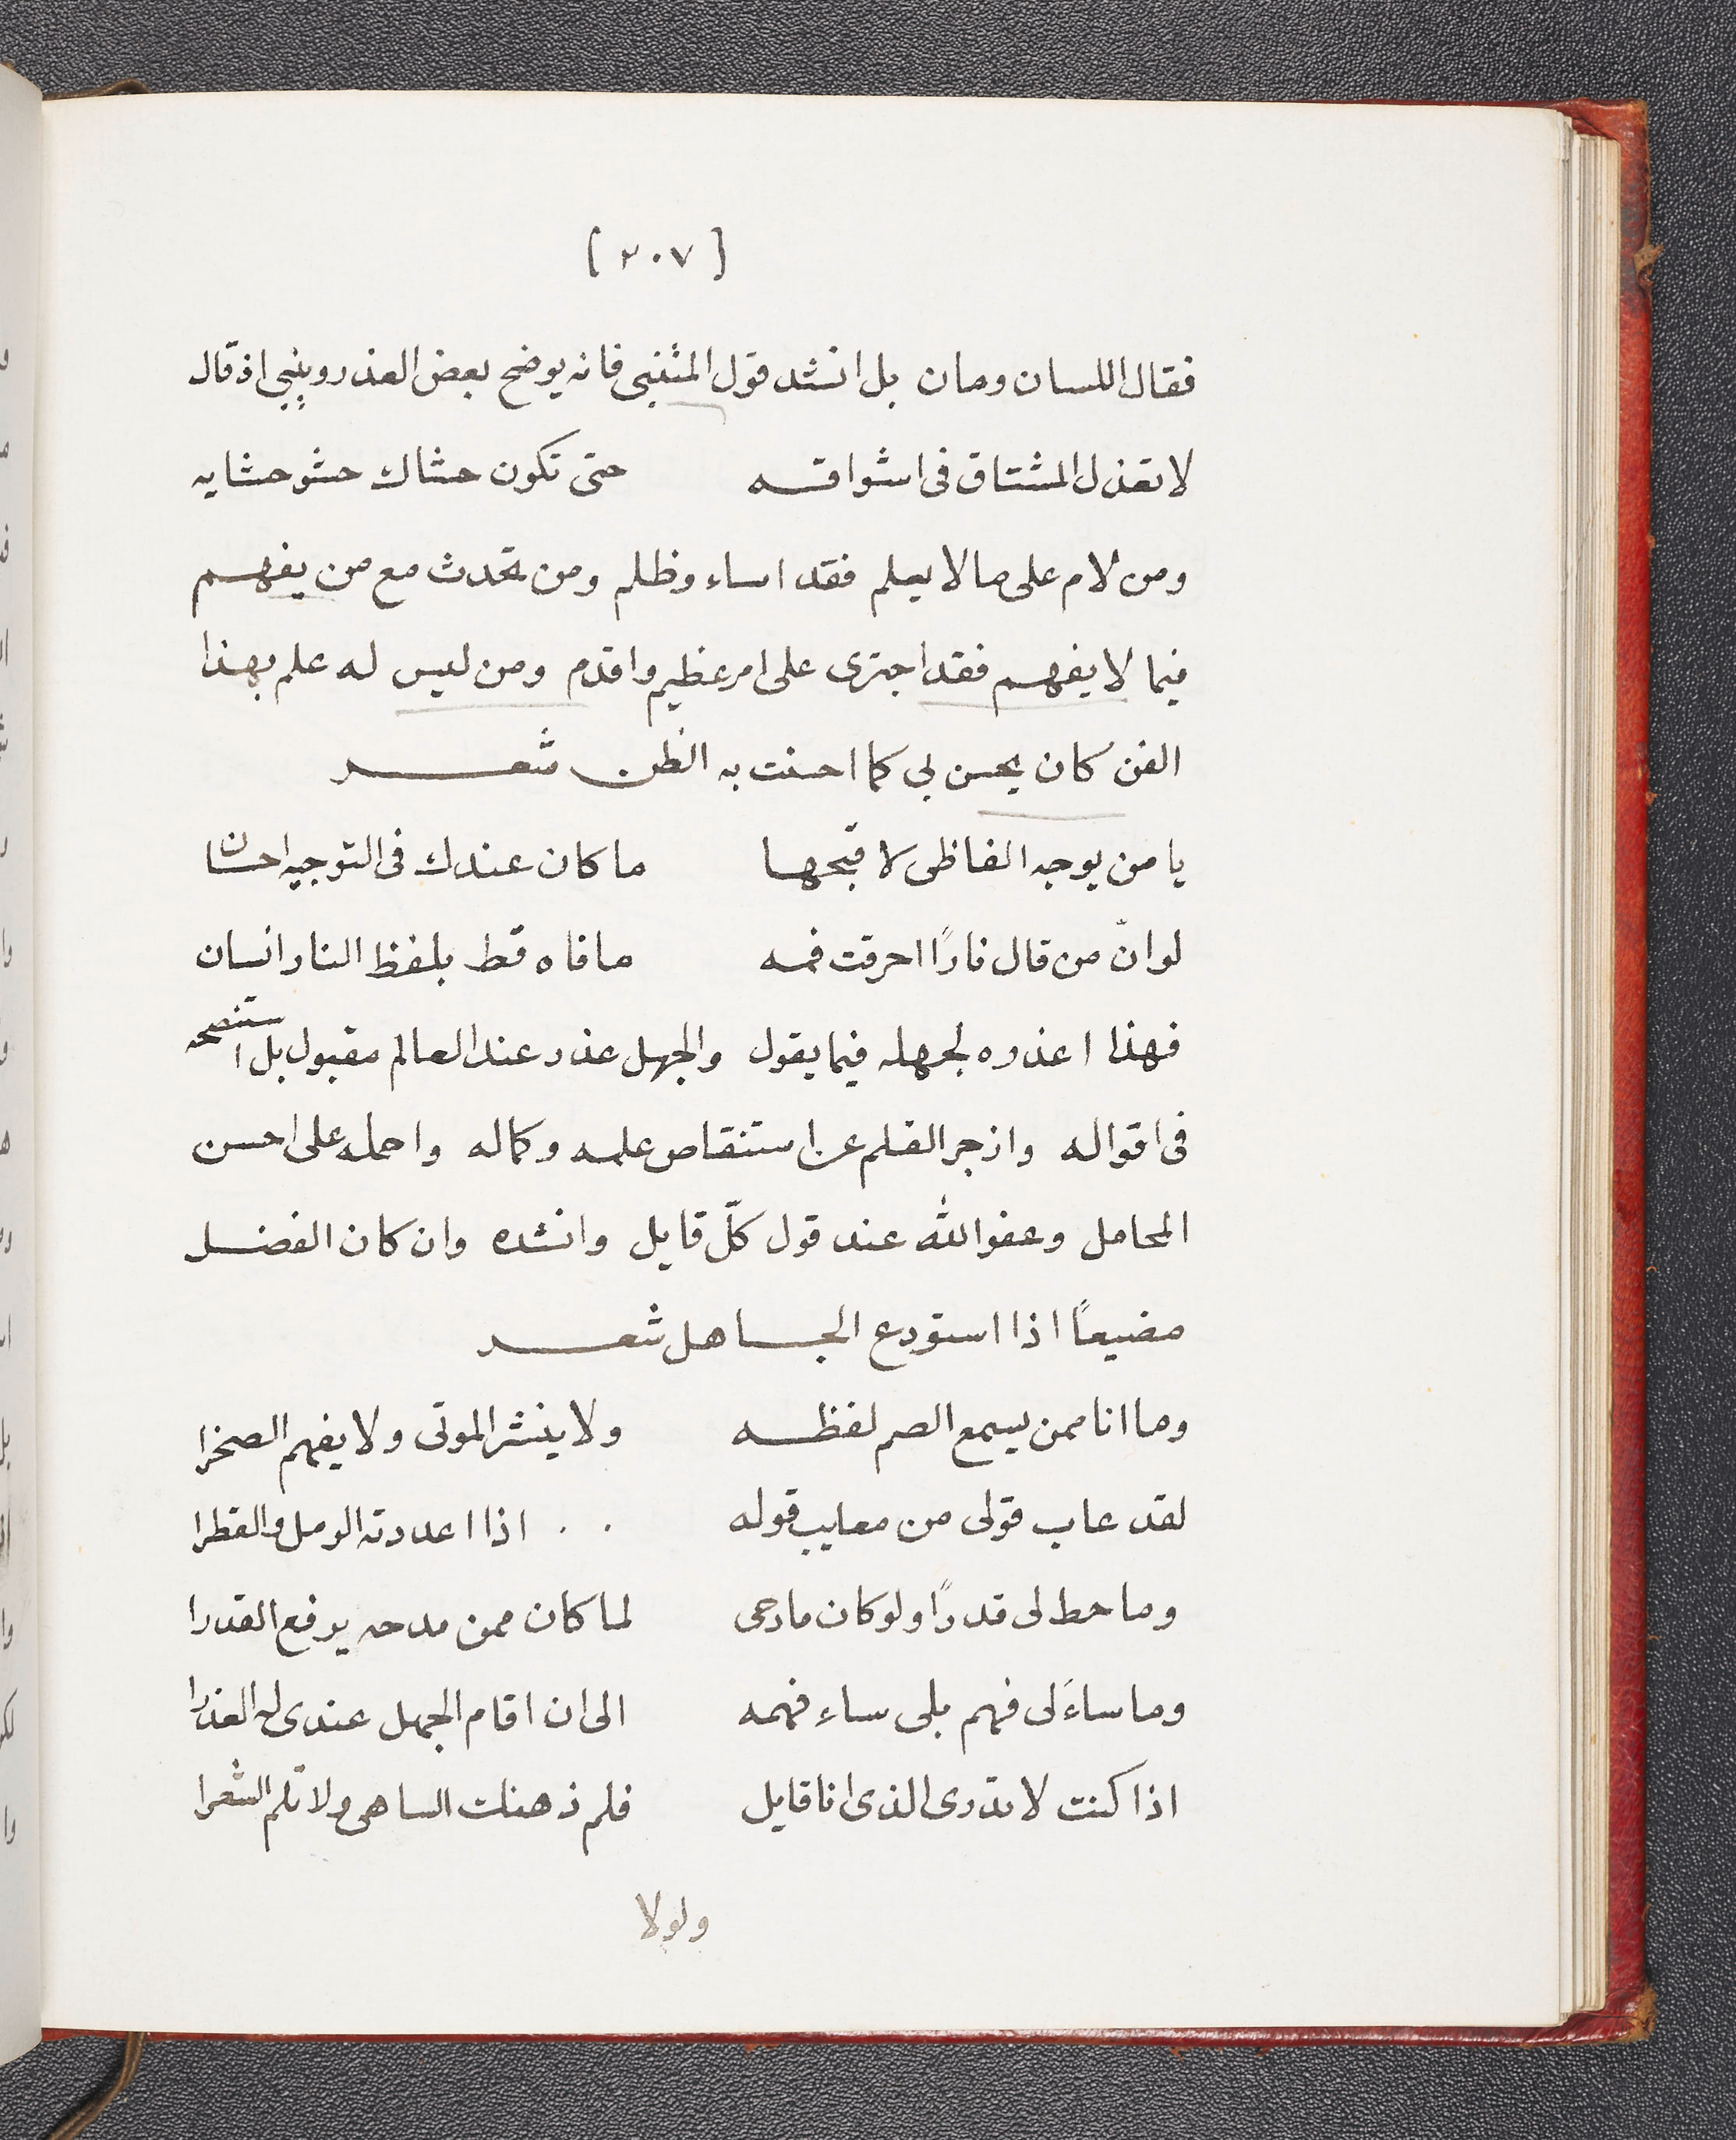 [٢٠٧]
فقال اللسان ومان بل انشد قول المتنبى فانه يوضح بعض العذر وينبى اذ قال
لا تعذل المشتاق فى اشواقه حتى تكون حشاك حشو حشايه
ومن لام على ما لا يعلم فقد اساء وظلم ومن تحدث مع من يفهم
فيما لا يفهم فقد اجترى على امر عظيم واقدم ومن ليس له علم بهذا
الفن كان يحسن بى كما احسنت به الظن شعر
يا من يوجه الفاظى لاقبحها ما كان عندك فى التوجيه احسان
لو انّ من قال نارًا احرقت فمه ما فاه قط بلفظ النار انسان
فهذا اعذره لجهله فيما يقول والجهل عذر عند العالم مقبول بل استنصحه
فى اقواله وازجر القلم عن استنقاص علمه وكماله واحمله على احسن
المحامل وعفو الله عند قول كلّ قايل وانشده وان كان الفضل
مضيعاً اذا استودع الجاهل شعر
وما انا ممن يسمع الصم لفظه ولا ينشر الموتى ولا يفهم الصخرا
لقد عاب قولى من معايب قوله . . اذا اعددته الرمل والقطرا
وما حط لى قدرًا ولو كان مادحى لما كان ممن مدحه يرفع القدرا
وما ساءَ لى فهم بلى ساءِ فهمه الى ان اقام الجهل عندى له العذرا
اذا كنت لا تدرى الذى انا قايل فلم ذهنك الساهى ولا تلم الشعرا
ولولا